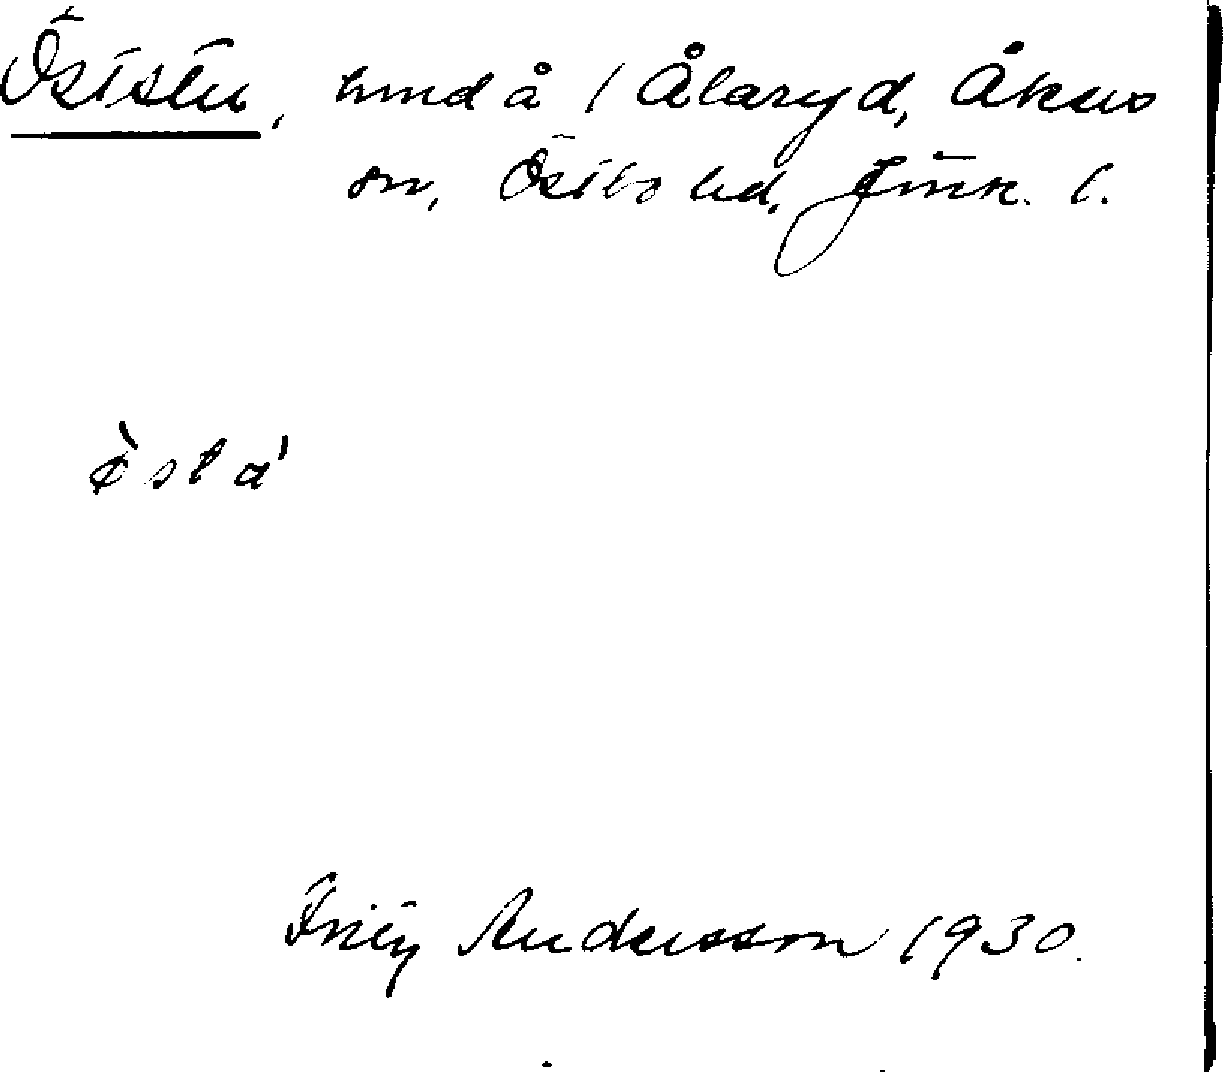 Öststen, hmd å / Ålaryd, Åkers
sn, Östbo hd, Jönk. l.
Fritz Andersson 1930.